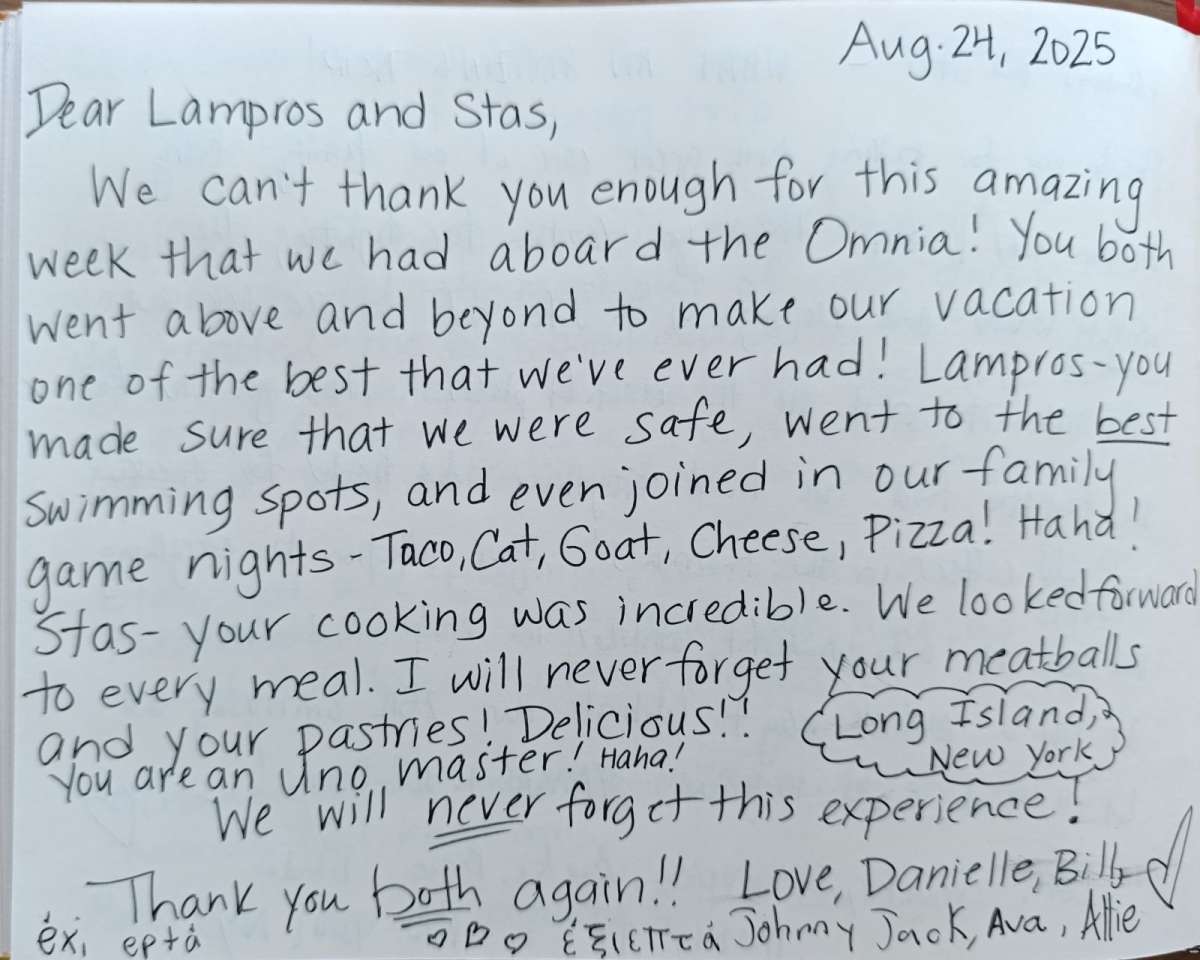 Aug. 24, 2025
Dear Lampros and Stas,
We can't thank you enough for this amazing
week that we had aboard the Omnia! You both
went above and beyond to make our vacation
one of the best that we've ever had! Lampros-you
made sure that we were safe, went to the best
swimming spots, and even joined in our family
game nights - Taco, Cat, Goat, Cheese, Pizza! Haha!
Stas- your cooking was incredible. We looked forward
to every meal. I will never forget your meatballs
and your pastries! Delicious!!
Long Island,
New York
You are an Uno master! Haha!
We will never forget this experience!
Thank you both again!! Love, Danielle, Billy
Johnny Jack, Ava, Allie
έχι ερtά
έξιεπτά